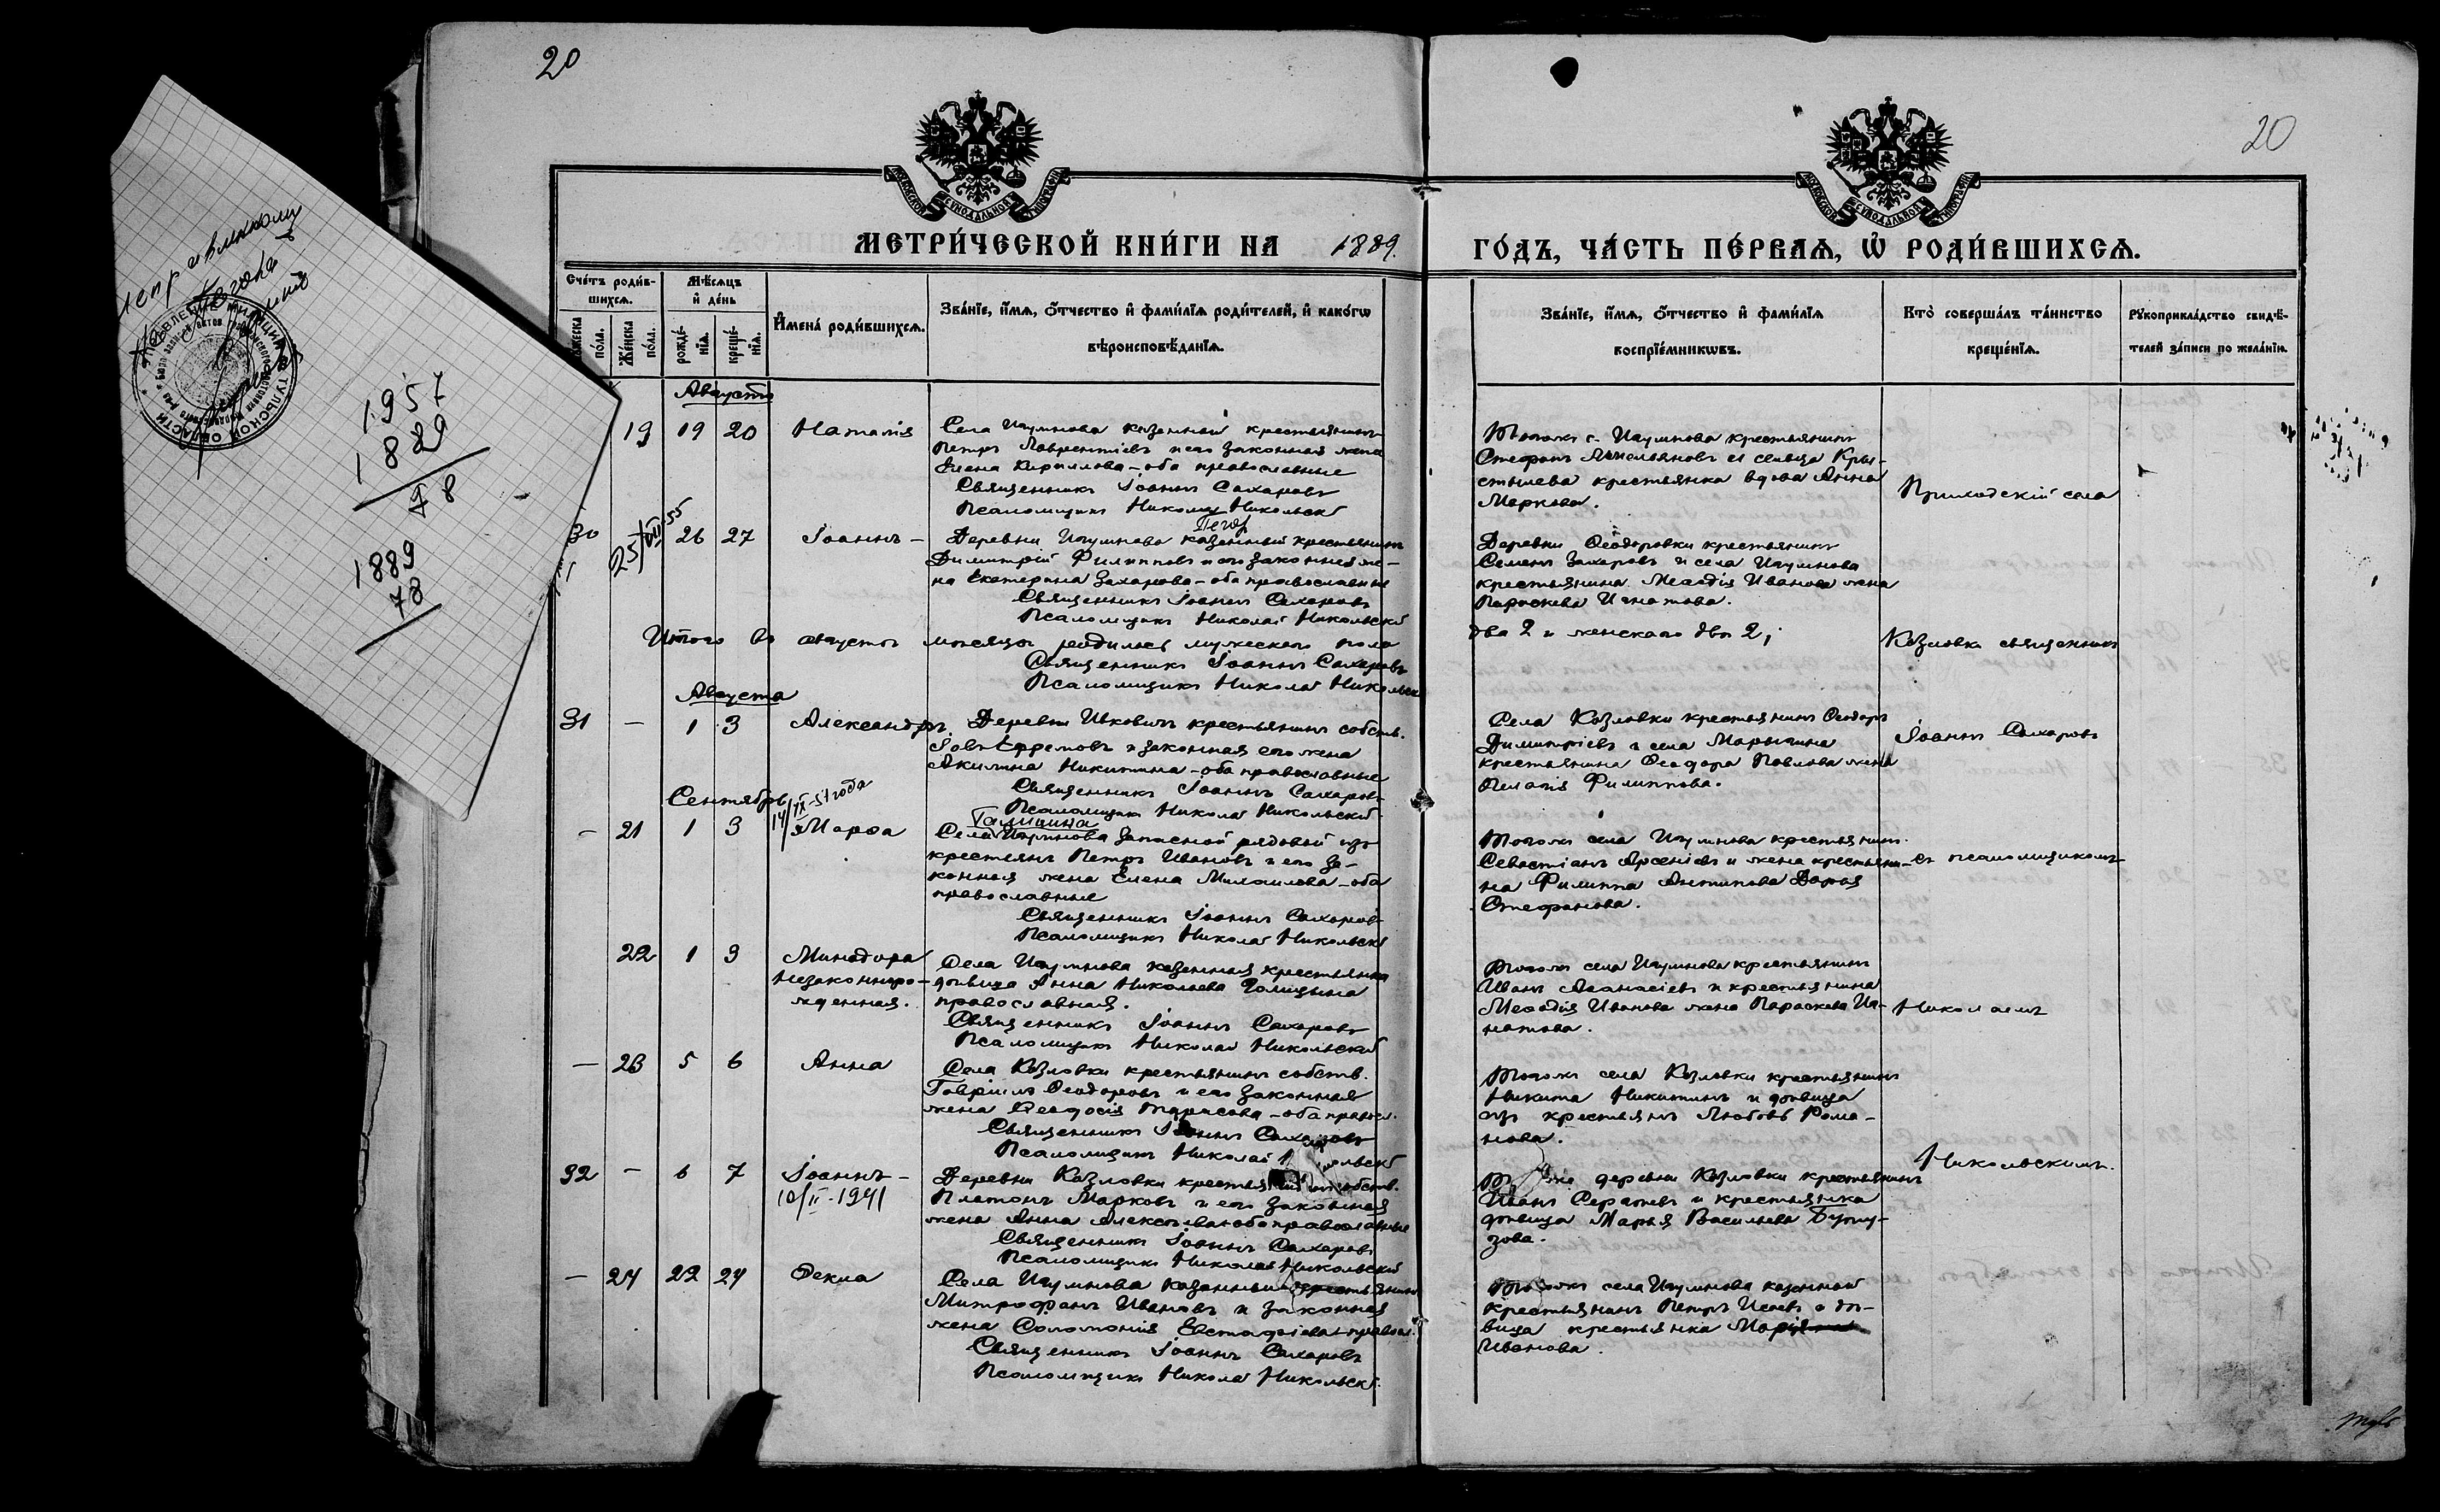 20
20
МЕТРИ́ЧЕСКОЙ КНИ́ГИ НА 1889. ГО́ДЪ, ЧА́СТЬ ПЕ́РВАѦ, Ѿ РОДИ́ВШИХСѦ.
Сче́тъ роди́в-
шихсѧ.
Мѣ́сѧцъ
и҆ де́нь
Же́нска
по́ла.
рожде́-
нїѧ.
креще́-
нїѧ.
И҆мена̀ роди́вшихсѧ.
Зва́нїе, и҆́мѧ, ѻ҆́тчество и҆ фами́лїѧ роди́телей, и҆ како́гѡ
вѣроисповѣ́данїѧ.
Зва́нїе, и҆́мѧ, ѻ҆́тчество и҆ фами́лїѧ
воспрїе́мникѡвъ.
Кто̀ соверша́лъ та́инство
креще́нїѧ.
Рꙋкоприкла́дство свидѣ́-
телей за́писи по жела́нїю.
1957
1889
78
1889
78
Августъ
19 19 20 Наталія
Села Игумнова казенный крестьянинъ
Петръ Лаврентіевъ и его законная жена
Елена Кириллова – оба православные
Священникъ Іоаннъ Сахаровъ
Псаломщикъ Николай Никольскій
Того же с. Игумнова крестьянинъ
Стефанъ Емельяновъ и
крестьянка вдова Анна
Маркова.
Приходскій села
30 26 27 Іоаннъ –
Деревни Игумнова казенный крестьянинъ
Димитрій Филипповъ и его законная же-
на Екатерина Захарова – оба православные
Священникъ Іоаннъ Сахаровъ
Псаломщикъ Николай Никольскій
Деревни Ѳеодоровки крестьянинъ
Семенъ Захаровъ и села Игумнова
крестьянина Меѳодія Иванова жена
Параскева Игнатова.
Итого въ августѣ мѣсяцѣ родилось мужескаго пола
два 2 и женскаго двѣ 2;
Священникъ Іоаннъ Сахаровъ
Псаломщикъ Николай Никольскій
Козловки священникъ
Августа
31 – 1 3 Александръ.
Деревни Ивковичъ крестьянинъ собств.
Іовъ Ефремовъ и законная его жена
Акилина Никитина – оба православные
Священникъ Іоаннъ Сахаровъ
Псаломщикъ Николай Никольскій
Села Козловки крестьянинъ Ѳеодоръ
Димитріевъ и села
крестьянина Ѳеодора Павлова жена
Пелагія Филиппова.
Іоаннъ Сахаровъ
Сентябрь
14/IX-51 года
– 21 1 3 Марѳа
Голицина
Села Игумнова запасной рядовой изъ
крестьянъ Петръ Ивановъ и его за-
конная жена Елена Михаилова – оба
православные
Священникъ Іоаннъ Сахаровъ
Псаломщикъ Николай Никольскій
Того же села Игумнова крестьянинъ
Севастіанъ Арсеніевъ и жена крестьяни-
на Филиппа Антипова Дарья
Стефанова.
съ псаломщикомъ
22 1 3 Минодора
незаконоро-
жденная.
Села Игумнова казенная крестьянка
дѣвица Анна Николаева Голицына
православная.
Священникъ Іоаннъ Сахаровъ
Псаломщикъ Николай Никольскій
Того же села Игумнова крестьянинъ
Иванъ Аѳанасіевъ и крестьянина
Меѳодія Иванова жена Параскева Иг-
натова.
Николаемъ
– 23 5 6 Анна
Села Козловки крестьянинъ собств.
Гавріилъ Ѳеодоровъ и его законная
жена Ѳеодосія Тарасова – оба правосл.
Священникъ Іоаннъ Сахаровъ
Псаломщикъ Николай
Того же села Козловки крестьянинъ
Никита Никитинъ и дѣвица
изъ крестьянъ Любовь Рома-
нова.
Никольскимъ.
32 – 6 7 Іоаннъ –
10/II-1941
Деревни Козловки
Платонъ Марковъ и его законная
жена Анна Алексѣева оба православные
Священникъ Іоаннъ Сахаровъ
Псаломщикъ Николай Никольскій
деревни Козловки крестьянинъ
Иванъ Сергѣевъ и крестьянка
дѣвица Марья Васильева
– 24 22 24 Ѳекла
Села Игумнова казенный крестьянинъ
Митрофанъ Ивановъ и законная
жена Соломонія
Священникъ Іоаннъ Сахаровъ
Псаломщикъ Николай Никольскій.
Того же села Игумнова казенный
крестьянинъ Петръ Исаевъ и дѣ-
вица крестьянка Марія
Иванова.